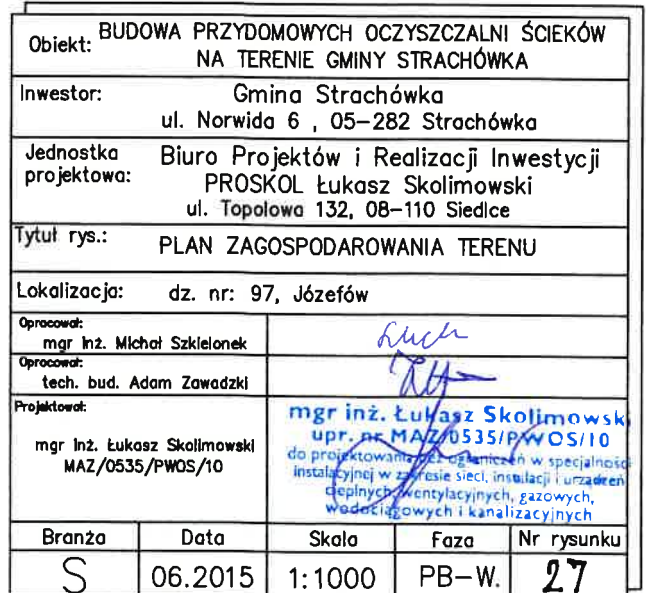 Obiekt: BUDOWA PRZYDOMOWYCH OCZYSZCZALNI ŚCIEKÓW
NA TERENIE GMINY STRACHÓWKA
Inwestor: Gmina Strachówka
ul. Norwida 6 , 05-282 Strachówka
Jednostka projektowa: Biuro Projektów i Realizacji Inwestycji
PROSKOL Łukasz Skolimowski
ul. Topolowa 132, 08-110 Siedlce
Tytuł rys.: PLAN ZAGOSPODAROWANIA TERENU
Lokalizacja: dz. nr: 97, Józefów
Opracował:
mgr inż. Michał Szkielonek
Opracował:
tech. bud. Adam Zawadzki
Projektował:
mgr inż. Łukasz Skolimowski
MAZ/0535/PWOS/10
mgr inż. Łukasz Skolimowski
upr. nr MAZ/0535/PWOS/10
do projektowania bez ograniczeń w specjalności
instalacyjnej w zakresie sieci, instalacji i urządzeń
cieplnych, wentylacyjnych, gazowych,
wodociągowych i kanalizacyjnych
Branża Data Skala Faza Nr rysunku
S 06.2015 1:1000 PB-W. 27